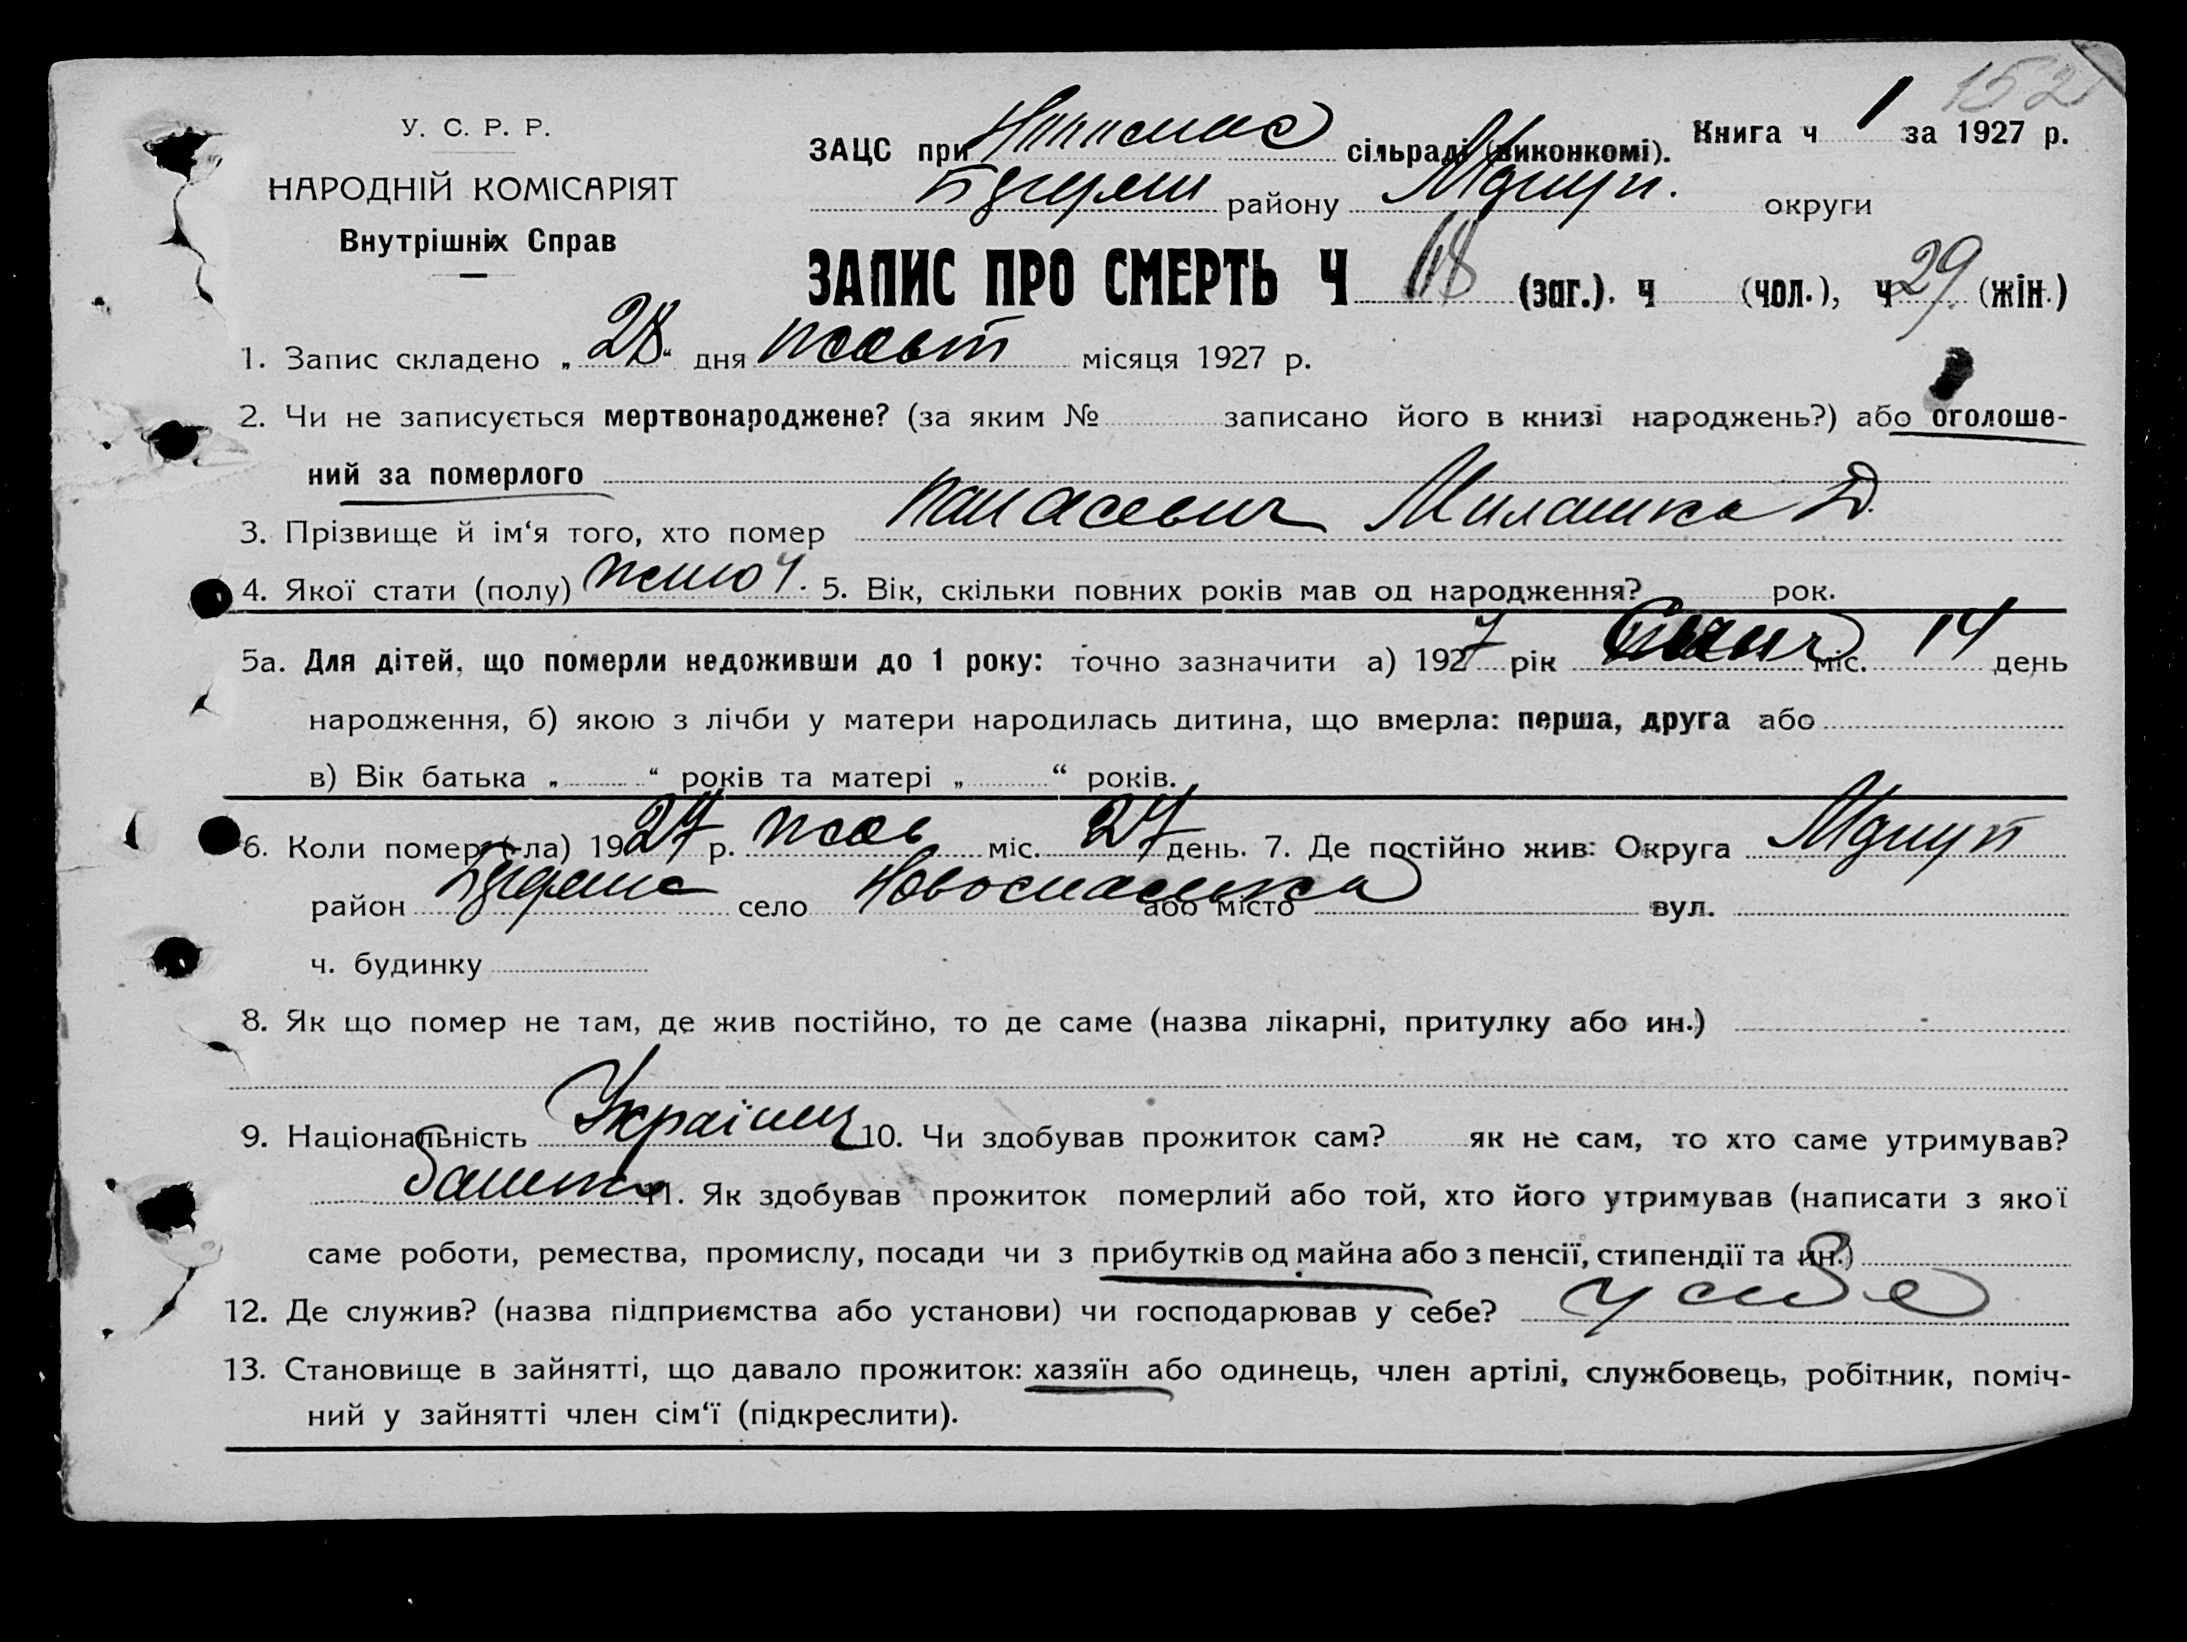 152
У. С. Р. Р.
НАРОДНІЙ КОМІСАРІЯТ
Внутрішніх Справ
ЗАЦС при сільраді (виконкомі). Книга ч 1 за 1927 р.
району округи
ЗАПИС ПРО СМЕРТЬ Ч 68 (заг.). ч (чол.), ч 29 (жін.)
1. Запис складено „ 28 “ дня жовт місяця 1927 р.
2. Чи не записується мертвонароджене? (за яким № записано його в книзі народжень?) або оголоше-
ний за померлого
3. Прізвище й ім‘я того, хто помер Панасевич Милашка Д.
4. Якої стати (полу) жіноч. 5. Вік, скільки повних років мав од народження? рок.
5а. Для дітей, що померли недоживши до 1 року: точно зазначити а) 1927 рік міс. 14 день
народження, б) якою з лічби у матери народилась дитина, що вмерла: перша, друга або
в) Вік батька „ “ років та матері „ “ років.
6. Коли помер (-ла) 1927 р. жов міс. 27 день. 7. Де постійно жив: Округа
район село Новоспаська або місто вул.
ч. будинку
8. Як що помер не там, де жив постійно, то де саме (назва лікарні, притулку або ин.)
9. Національність Україн 10. Чи здобував прожиток сам? як не сам, то хто саме утримував?
11. Як здобував прожиток померлий або той, хто його утримував (написати з якої
саме роботи, ремества, промислу, посади чи з прибутків од майна або з пенсії, стипендії та ин.)
12. Де служив? (назва підприємства або установи) чи господарював у себе? у себе
13. Становище в зайнятті, що давало прожиток: хазяїн або одинець, член артілі, службовець, робітник, поміч-
ний у зайнятті член сім‘ї (підкреслити).